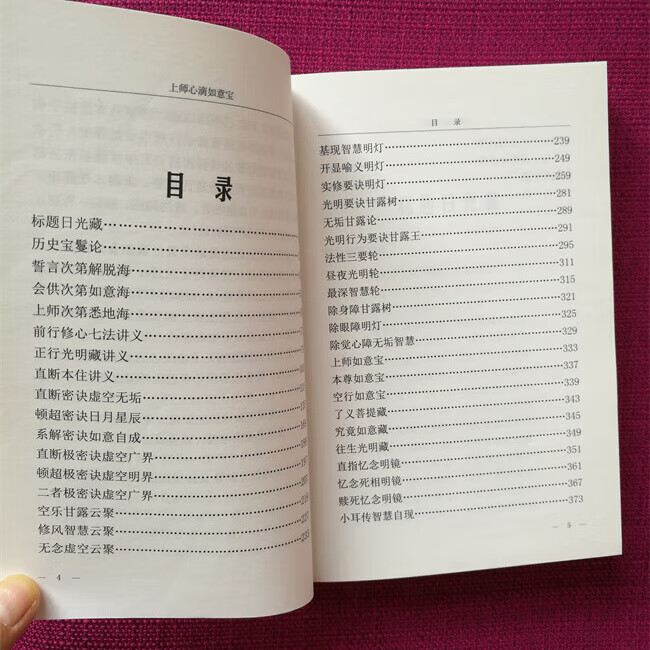 上师心滴如意宝
目 录
标题日光藏
历史宝鬘论
誓言次第解脱海
会供次第如意海
上师次第悉地海
前行修心七法讲义
正行光明藏讲义
直断本住讲义
直断密诀虚空无垢
顿超密诀日月星辰
系解密诀如意自成
直断极密诀虚空广界
顿超极密诀虚空明界
二者极密诀虚空广界
空乐甘露云聚
修风智慧云聚
无念虚空云聚
— 4 —
目 录
基现智慧明灯………239
开显喻义明灯………249
实修要诀明灯………259
光明要诀甘露树………281
无垢甘露论………289
光明行为要诀甘露王………291
法性三要轮………295
昼夜光明轮………311
最深智慧轮………315
除身障甘露树………321
除眼障明灯………325
除觉心障无垢智慧………329
上师如意宝………333
本尊如意宝………337
空行如意宝………339
了义菩提藏………343
究竟如意藏………345
往生光明藏………349
直指忆念明镜………351
忆念死相明镜………361
赎死忆念明镜………367
小耳传智慧自现………373
— 5 —